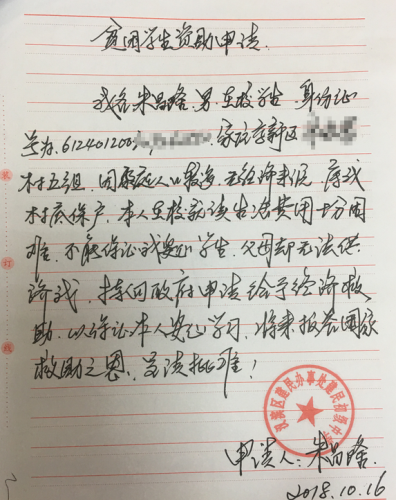 贫困学生资助申请.
我名朱昌熔,男.在校学生,身份证
号为.612401200 家住高新区
村五组,因家庭人口较多,无经济来源,属我
村低保户,本人在校就读生活费用十分困
难,不能保证我安心学生,父母却无法供
济我,特向政府申请给予经济救
助,以保证本人安心学习,将来报答国家
救助之恩,呈请批准!
申请人:朱昌熔
2018.10.16
装
订
线
高新区建民办事处建民初级中学